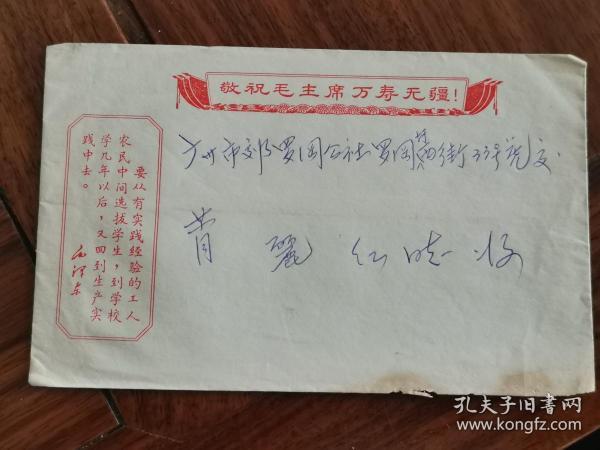 敬祝毛主席万寿无疆！
要从有实践经验的工人
农民中间选拔学生，到学校
学几年以后，又回到生产实
践中去。
毛泽东
广州市郊罗岗公社罗岗 街33号 交
丽红 收
孔夫子旧书网
www.kongfz.com